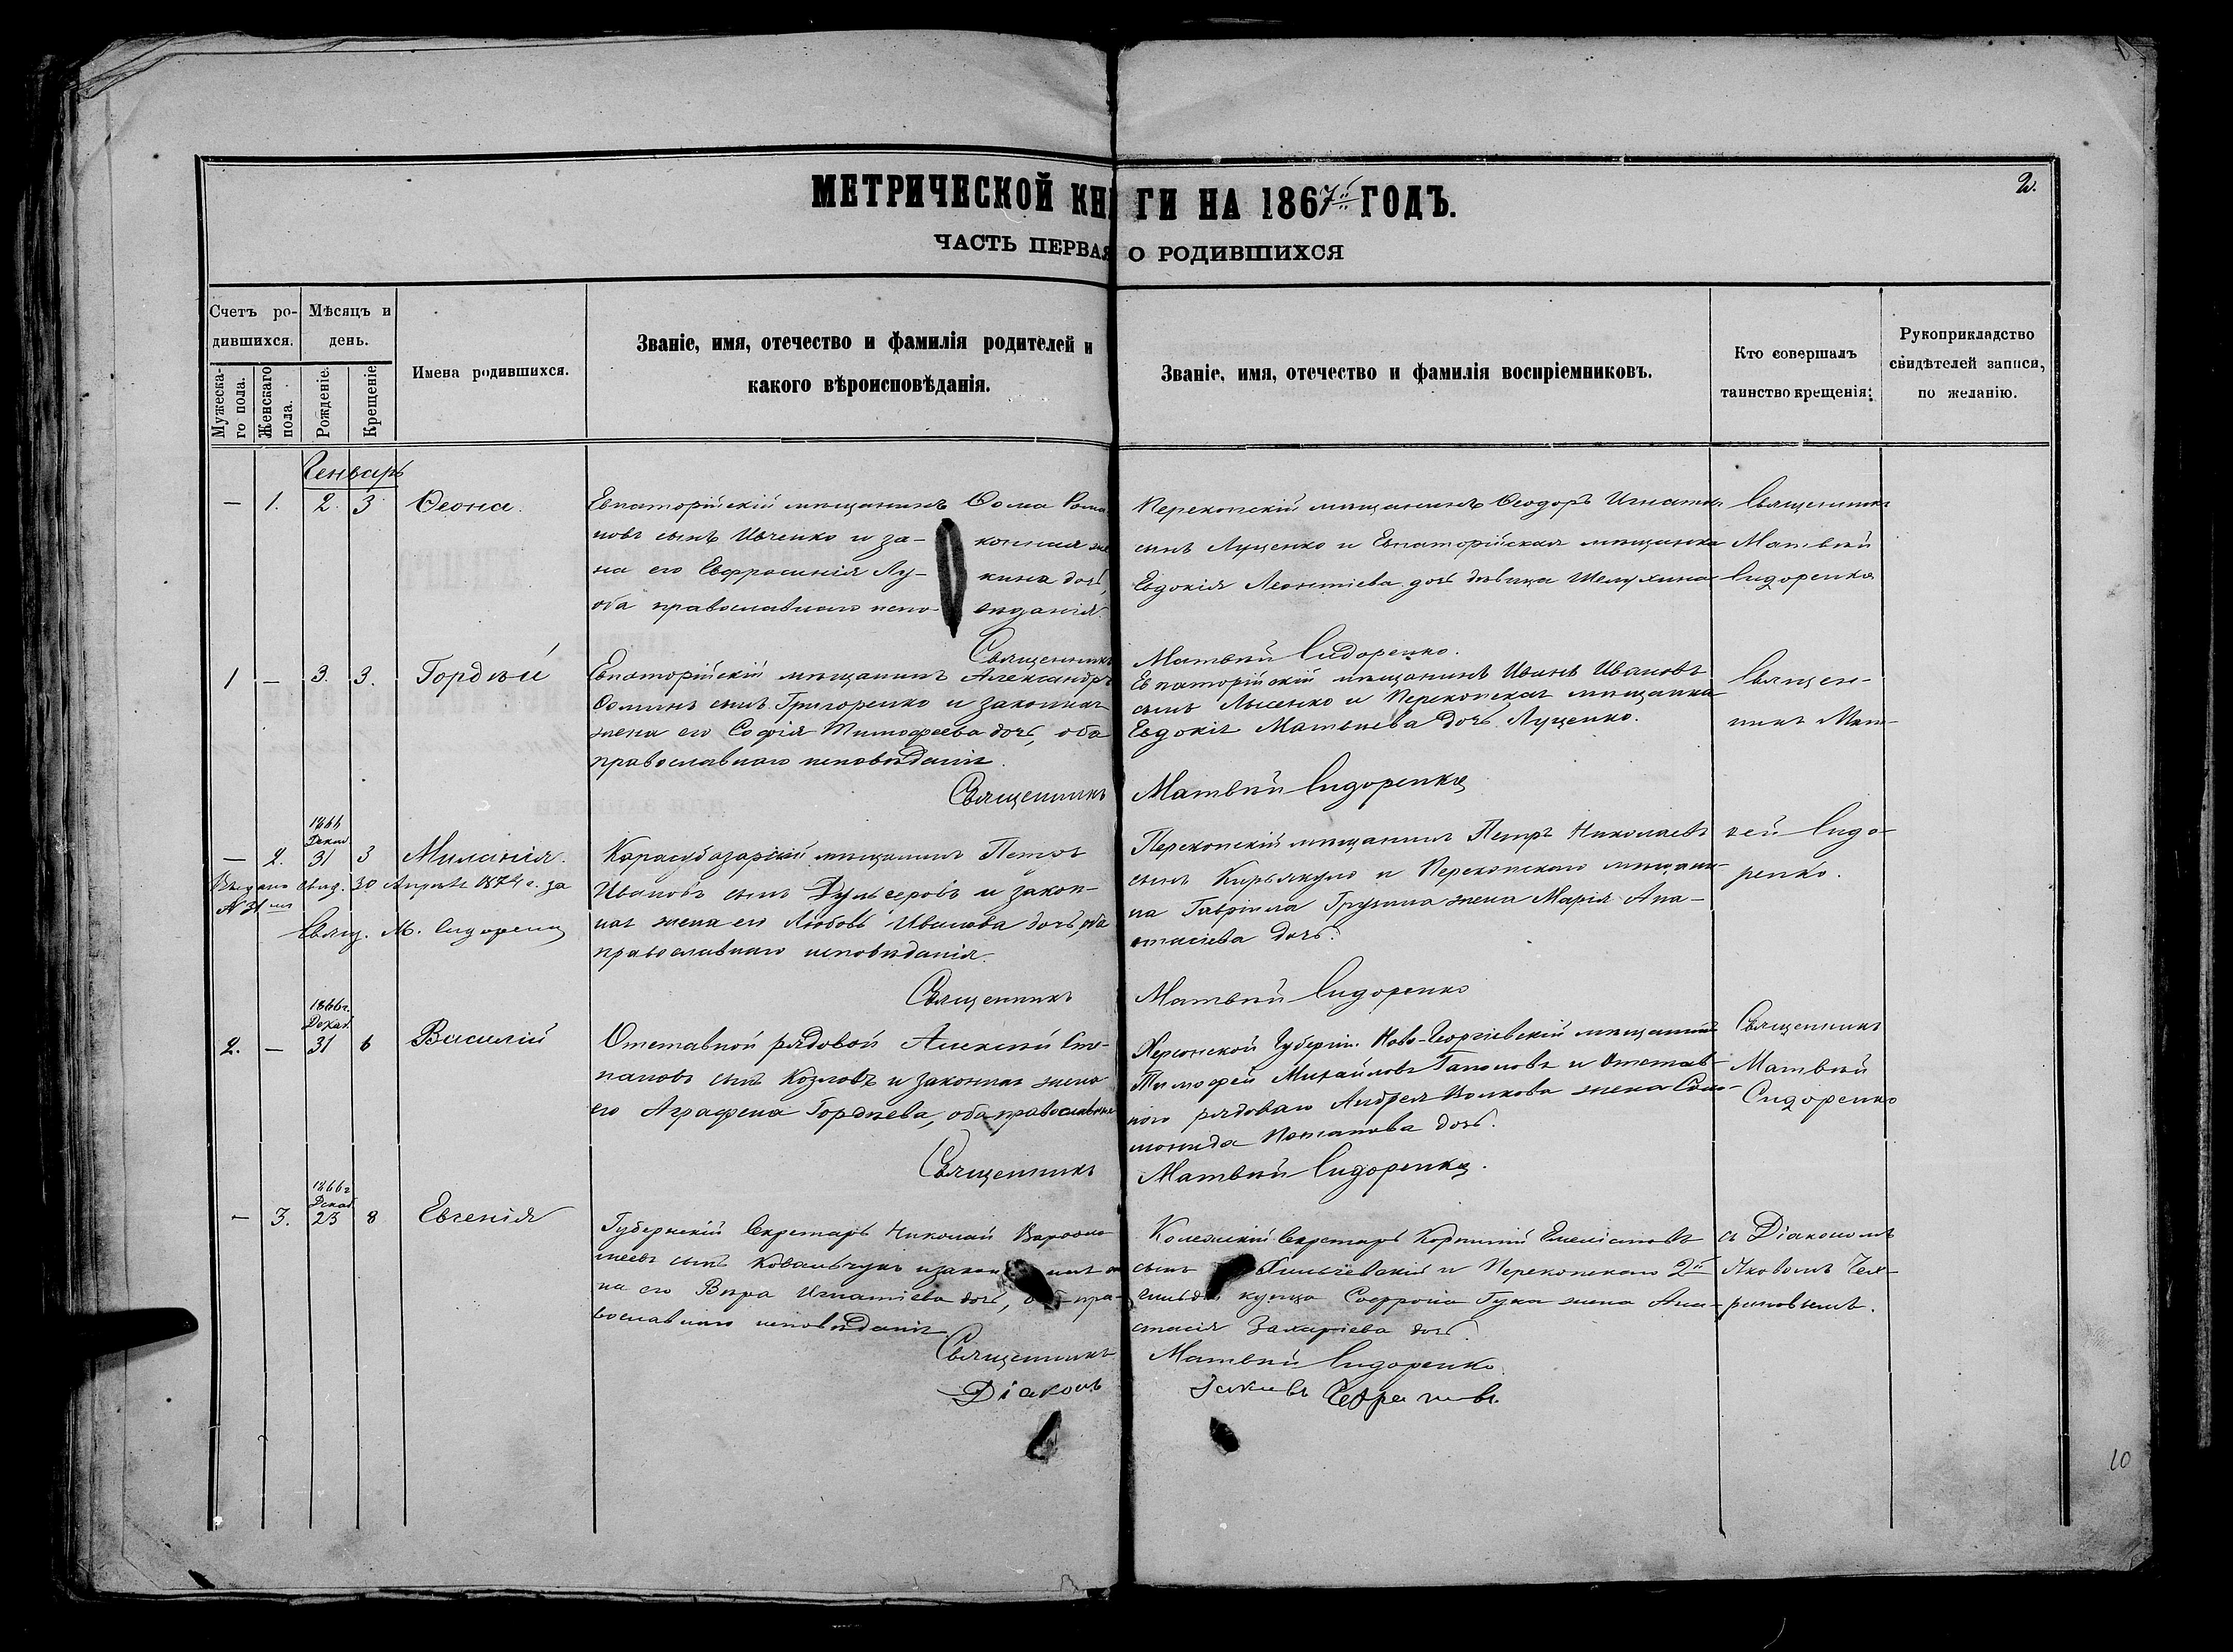 МЕТРИЧЕСКОЙ КНИГИ НА 1867й ГОДЪ.
2.
ЧАСТЬ ПЕРВАЯ О РОДИВШИХСЯ
Счетъ родившихся.
Мужескаго пола.
Женскаго пола.
Мѣсяцъ и день.
Рожденіе.
Крещеніе
Имена родившихся.
Званіе, имя, отечество и фамилія родителей и
какого вѣроисповѣданія.
Званіе, имя, отечество и фамилія воспріемниковъ.
Кто совершалъ
таинство крещенія:
Рукоприкладство
свидѣтелей записи,
по желанію.
Генварь
— 1. 2. 3. Ѳеона.
Евпаторійскій мѣщанинъ Ѳома Рома
новъ сынъ Ивченко и за- конная же
на его Евфросинія Лу- кина дочь,
оба православнаго испо- вѣданія.
Перекопскій мѣщанинъ Ѳеодоръ Игнатьев
сынъ Луценко и Евпаторійская мѣщанка
Евдокія Леонтіева дочь дѣвица Шелухина
Священникъ
Матвѣй
Сидоренко
Священникъ Матвѣй Сидоренко.
1 — 3. 3. Гордѣй
Евпаторійскій мѣщанинъ Александръ
Ѳоминъ сынъ Григоренко и законная
жена его Софія Тимофеева дочь, оба
православнаго исповѣданія.
Евпаторійскій мѣщанинъ Иванъ Ивановъ
сынъ Лысенко и Перекопская мѣщанка
Евдокія Матвѣева дочь Луценко.
Священ-
никъ Мат-
Священникъ Матвѣй Сидоренко
— 2. 1866 Декаб 31 3 Миланія.
Выдано свид. 30 Апрѣля 1874 г. за
№ 31
Свящ. М. Сидоренко
Карасубазарскій мѣщанинъ Петръ
Ивановъ сынъ и закон-
ная жена его Любовь Иванова дочь, оба
православнаго исповѣданія.
Перекопскій мѣщанинъ Петръ Николаевъ
сынъ Кирьякуло и Перекопскаго мѣщани-
на Гавріила Грузина жена Марія Ана-
стасіева дочь.
вей Сидо-
ренко.
Священникъ Матвѣй Сидоренко
2. — 1866 г. Декаб. 31 6 Василій
Отставной рядовой Алексѣй Сте-
пановъ сынъ Козловъ и законная жена
его Аграфена Гордѣева, оба православнаго
Херсонской Губерніи Ново-Георгіевскій мѣщанинъ
Тимофей Михайловъ Гапоновъ и Отстав-
ного рядоваго Андрея Волкова жена Соло-
монида Потапова дочь.
Священникъ
Матвѣй
Сидоренко
Священникъ Матвѣй Сидоренко.
— 3. 1866 г Декаб 23 8 Евгенія
Губернскій Секретарь Николай Варѳоло
меевъ сынъ Ковальчукъ и закон
на его Вѣра Игнатіева дочь, оба пра-
вославнаго исповѣданія.
Колежскій Секретарь
сынъ и Перекопскаго 2й
гильдіи купца Софронія Гука жена Ана-
стасія Захаріева дочь.
съ Діакономъ
Яковомъ Чех-
рановымъ.
Священникъ Матвѣй Сидоренко
Діаконъ Іаковъ Чехрановъ.
10